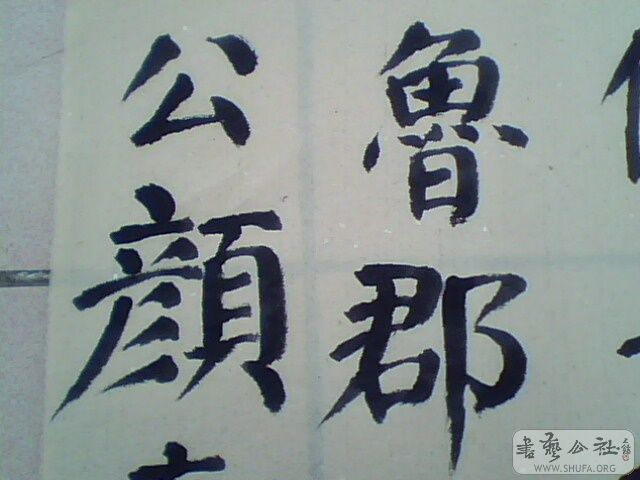 魯郡
公顏
書藝公社
WWW.SHUFA.ORG